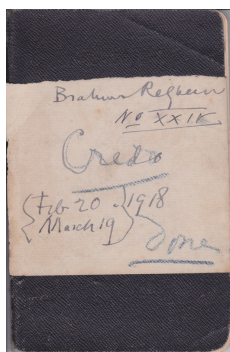 Brahms Requiem
No XXIX
Credo
{Feb 20 }1918
{March 19}
Done